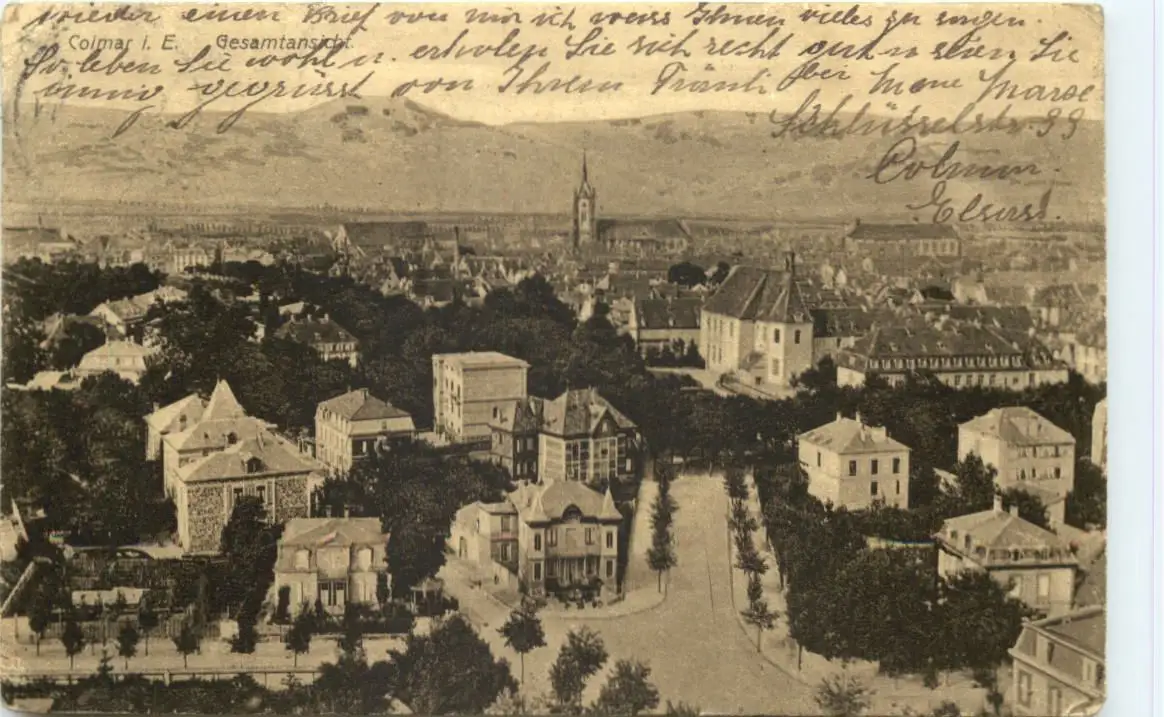 wieder einen Brief von mir ich weiss Ihnen vieles zu sagen.
Colmar i. E. Gesamtansicht.
So leben Sie wohl u. erholen Sie sich recht gut u seien Sie
innig gegrüsst von Ihrem Fränli
Schlüsselstr. 99
Colmar.
Elsass.